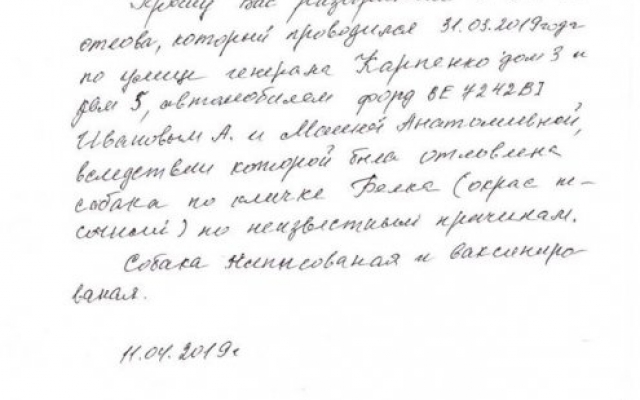 Прошу Вас
отлова, который проводился 31.03.2019года
по улице генерала Карпенко дом 3 и
дом 5, автомобилем форд ВЕ 7242ВІ
Ивановым А. и Анатолиивной,
вследствии которой была отловлена
собака по кличке Белка (окрас пе-
сочный) по неизвестным причинам.
Собака чипысованая и ваксиниро-
ваная.
11.04.2019г